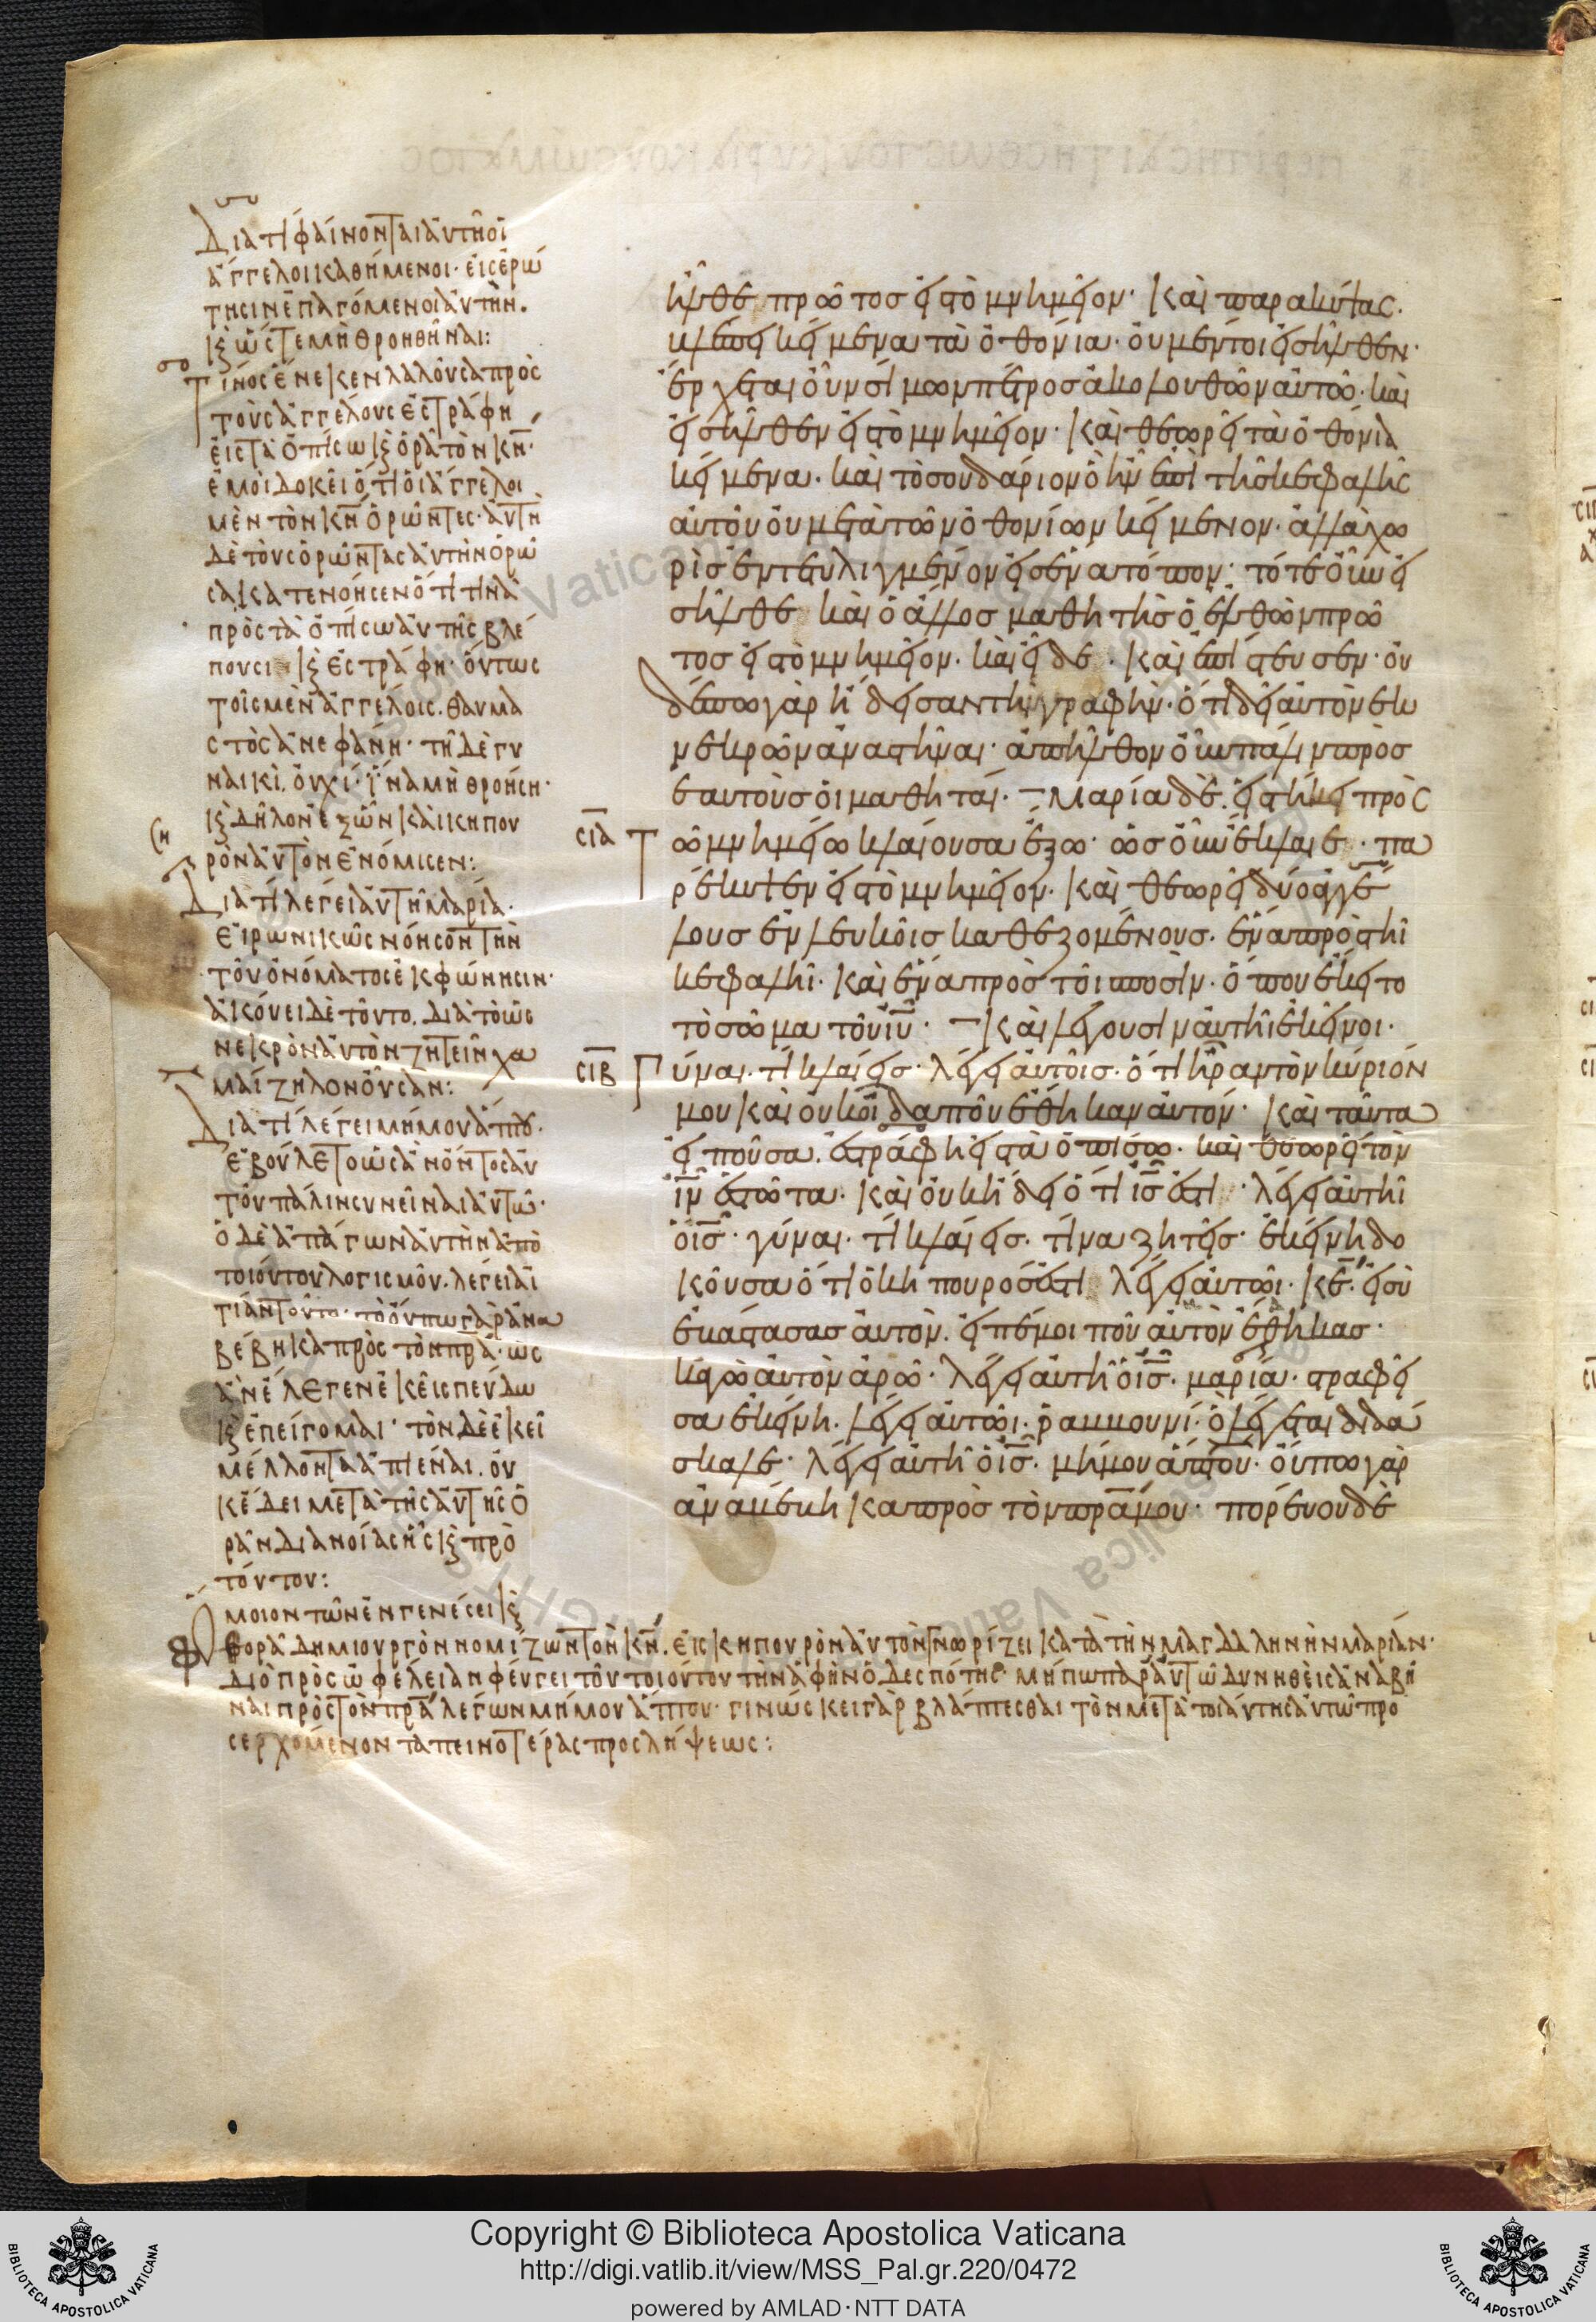 Διατί φαίνονται αὐτῆ οἱ
ἄγγελοι καθήμενοι· εἰς ἐρώ
τησιν ἐπαγόμενοι αὐτήν.
κ̀ ὥστε μὴ θροηθῆναι:
Τίνος ἕνεκεν λαλοῦσα πρὸς
τοὺς ἀγγέλους ἐστράφη
εἰς τὰ ὀπίσω κ̀ ὁρᾶ τὸν κν̄·
ἐμοὶ δοκεῖ ὅτι οἱ ἄγγελοι
μὲν τὸν κν̄ ὁρῶντες· αὕτη
δὲ τοὺς ὁρῶντας αὐτὴν ὁρῶ
σα κατενόησεν ὅτι τινὰ
πρὸς τὰ ὀπίσω αὐτῆς βλέ
πουσι κ̀ ἐστράφη· οὕτως
τοῖς μὲν ἀγγέλοις. θαυμα
στὸς ἀνεφάνη· τῆ δὲ γυ
ναικὶ. οὐχί· ἵνα μὴ θροήση·
κ̀ δῆλον ἐξ ὧν καὶ κηπου
ρὸν αὐτὸν ἐνόμισεν:
Διατί λέγει αὐτῆ μαρία·
εἰρωνικῶς νόησον τὴν
τοῦ ὀνόματος ἐκφώνησιν·
ἀκούει δὲ τοῦτο. διὰ τὸ ὡς
νεκρὸν αὐτὸν ζητεῖν χα
μαίζηλον οὖσαν:
Διατί λέγει μή μου ἅπτου·
ἐβούλετο ὡσανόντος αὐ
τοῦ πάλιν συνεῖναι αὐτῶ·
ὁ δὲ ἀπάγων αὐτὴν ἀπὸ
τοιούτου λογισμοῦ. λέγει αἰ
τίαν τοῦτο· τὸ οὔπω γὰρ ἀνα
βέβηκα πρὸς τὸν πρ̄α· ὡς
ἂν ἔλεγεν ἐκεῖ σπεύδω
κ̀ ἐπείγομαι· τὸν δὲ ἐκεῖ
μέλλοντα ἀπιέναι. οὐ
κ ἔδει μετὰ τῆς αὐτῆς ὁ
ρᾶν διανοίας ἧς κ̀ πρὸ
τούτου:
Ὅμοιον τῶν ἐν γενέσει κ̀
θεορᾶ δημιουργὸν νομίζων τὸν κν̄. εἰς κηπουρὸν αὐτὸν γνωρίζει κατὰ τὴν μαγδαληνὴν μαρίαν·
διὸ πρὸς ὠφέλειαν φεύγει τοῦ τοιούτου τὴν ἀφὴν ὁ δεσπότης· μήπω παρ αὐτῶ δυνηθεὶς ἀναβῆ
ναι πρὸς τὸν πρ̄α λέγων μή μου ἅπτου· γινώσκει γὰρ βλάπτεσθαι τὸν μετὰ τοιαύτης αὐτῶ προ
σερχόμενον ταπεινοτέρας προσλήψεως:
ἦλθε πρῶτος εἰς τὸ μνημεῖον· καὶ παρακύψας.
βλέπει κείμενα τὰ ὀθόνια· οὐ μέντοι εἰσῆλθεν·
ἔρχεται οὖν σίμων πέτρος ἀκολουθῶν αὐτῶ· καὶ
εἰσῆλθεν εἰς τὸ μνημεῖον· καὶ θεωρεῖ τὰ ὀθόνια
κείμενα· καὶ τὸ σουδάριον ὃ ἦν ἐπὶ τῆς κεφαλῆς
αὐτοῦ οὐ μετὰ τῶν ὀθονίων κείμενον· ἀλλὰ χω
ρὶς ἐντετυλιγμένον εἰς ἕνα τόπον· τότε οὖν εἰ
σῆλθε καὶ ὁ ἄλλος μαθητὴς ὁ ἐλθὼν πρῶ
τος εἰς τὸ μνημεῖον· καὶ εἶδε. καὶ ἐπίστευσεν· οὐ
δέπω γὰρ ἤδεισαν τὴν γραφήν· ὅτι δεῖ αὐτὸν ἐκ
νεκρῶν ἀναστῆναι· ἀπῆλθον οὖν πάλιν πρὸς
ἑαυτοὺς οἱ μαθηταί· μαρία δὲ. εἱστήκει πρὸς
σιᾱ τῶ μνημείω κλαίουσα ἔξω· ὡς οὖν ἔκλαιε· πα
ρέκυψεν εἰς τὸ μνημεῖον· καὶ θεωρεῖ δύο ἀγγέ
λους ἐν λευκοῖς καθεζομένους· ἕνα πρὸς τῆ
κεφαλῆ· καὶ ἕνα πρὸς τοῖ ποσίν· ὅπου ἔκειτο
τὸ σῶμα τοῦ ιῡ· καὶ λέγουσιν αὐτῆ ἐκεῖνοι·
σιβ̄ Γύναι· τί κλαίεις· λέγει αὐτοῖς· ὅτι ἦραν τὸν κύριόν
μου καὶ οὐκ οἶδα ποῦ ἔθηκαν αὐτόν· καὶ ταῦτα
εἰποῦσα. ἐστράφη εἰς τὰ ὀπίσω· καὶ θεωρεῖ τὸν
ιν̄ ἑστῶτα· καὶ οὐκ ἤδει ὅτι ισ̄ ἐστι· λέγει αὐτῆ
ὁ ισ̄· γύναι· τί κλαίεις· τίνα ζητεῖς· ἐκείνη δο
κοῦσα ὅτι ὁ κηπουρός ἐστι λέγει αὐτῶι· κε̄· εἰ σὺ
ἐβάστασας αὐτόν. εἰπέ μοι ποῦ αὐτὸν ἔθηκας·
κἀγὼ αὐτὸν ἀρῶ· λέγει αὐτῆ ὁ ισ̄· μαρία· στραφεῖ
σα ἐκείνη. λέγει αὐτῶι· ῥαββουνί· ὃ λέγεται διδά
σκαλε· λέγει αὐτῆ ὁ ισ̄· μή μου ἅπτου· οὔπω γὰρ
ἀναβέβηκα πρὸς τὸν πρ̄α μου· πορεύου δὲ
Copyright © Biblioteca Apostolica Vaticana
http://digi.vatlib.it/view/MSS_Pal.gr.220/0472
powered by AMLAD·NTT DATA
BIBLIOTECA APOSTOLICA VATICANA
BIBLIOTECA APOSTOLICA VATICANA